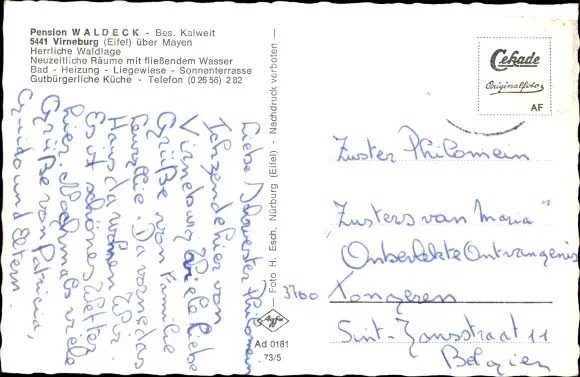 Pension WALDECK - Bes. Kalweit
5441 Virneburg (Eifel) über Mayen
Herrliche Waldlage
Neuzeitliche Räume mit fließendem Wasser
Bad - Heizung - Liegewiese - Sonnenterrasse
Gutbürgerliche Küche - Telefon (0 26 56) 2 82
Liebe Schwester Philomein
Ich sende hier von
Virneburg viele liebe
Grüße von Familie
Da vorne das
Haus da wohnen wir.
Es ist schönes Wetter
hier. Nochmals viele
Grüße von Patricia,
Guido und Eltern.
— Foto H. Esch, Nürburg (Eifel) - Nachdruck verboten —
Agfa
Ad 0181
73/5
Cekade
Originalfoto
AF
Zuster Philomein
Zusters van Maria"
Onbevlekte Ontvangenis
3700 Tongeren
Sint-Jansstraat 11
Belgien